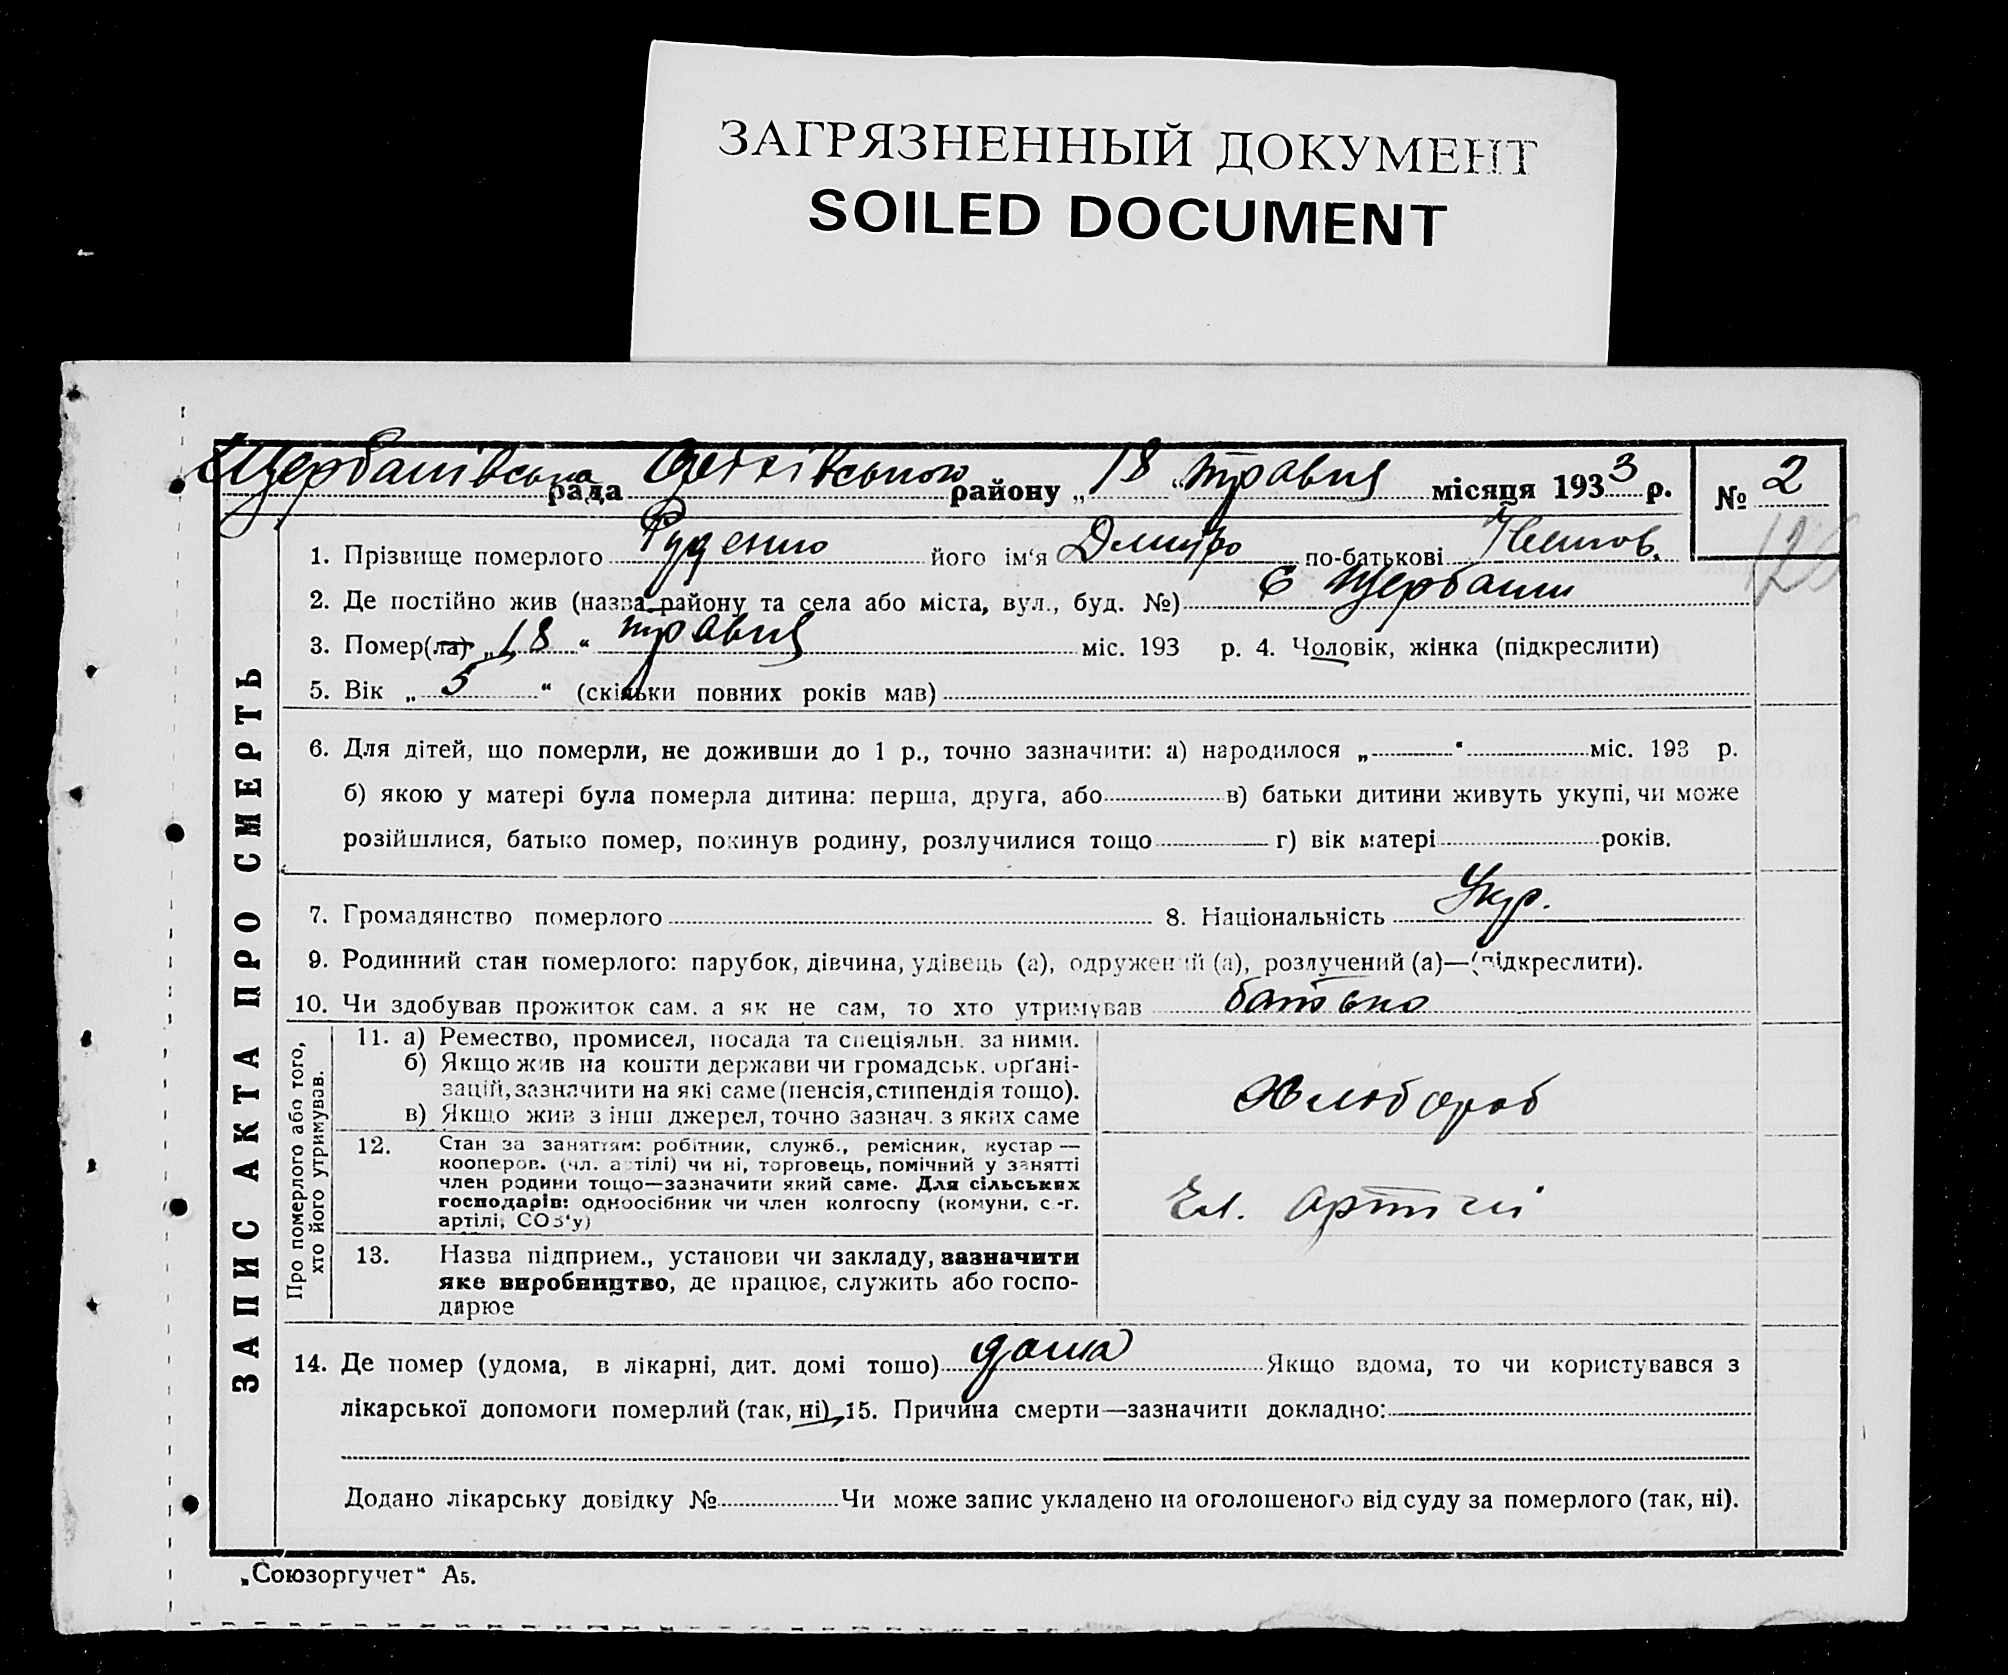 ЗАГРЯЗНЕННЫЙ ДОКУМЕНТ
SOILED DOCUMENT
Щербанівська рада району „18“ травня місяця 1933 р. № 2
ЗАПИС АКТА ПРО СМЕРТЬ
1. Прізвище померлого Руденко його ім‘я Дмитро по-батькові
2. Де постійно жив (назва району та села або міста, вул., буд. №) С Щербани
3. Помер(ла) „18“ травня міс. 193 р. 4. Чоловік, жінка (підкреслити)
5. Вік „5“ (скільки повних років мав)
6. Для дітей, що померли, не доживши до 1 р., точно зазначити: а) народилося „ “ міс. 193 р.
б) якою у матері була померла дитина: перша, друга, або в) батьки дитини живуть укупі, чи може
розійшлися, батько помер, покинув родину, розлучилися тощо г) вік матері років.
7. Громадянство померлого 8. Національність Укр.
9. Родинний стан померлого: парубок, дівчина, удівець (а), одружений (а), розлучений (а)—(підкреслити).
10. Чи здобував прожиток сам, а як не сам, то хто утримував батько
Про померлого або того,
хто його утримував.
11. а) Ремество, промисел, посада та спеціяльн. за ними.
б) Якщо жив на кошти держави чи громадськ. орґані-
зацій, зазначити на які саме (пенсія, стипендія тощо).
в) Якщо жив з інш джерел, точно зазнач. з яких саме
Хлібороб
12. Стан за заняттям: робітник, служб., ремісник, кустар —
кооперов. (чл. артілі) чи ні, торговець, помічний у занятті
член родини тощо—зазначити який саме. Для сільських
господарів: одноосібник чи член колгоспу (комуни, с.-г.
артілі, СОЗ‘у)
артілі
13. Назва підприєм., установи чи закладу, зазначити
яке виробництво, де працює, служить або госпо-
дарює
14. Де помер (удома, в лікарні, дит. домі тощо) дома Якщо вдома, то чи користувався з
лікарської допомоги померлий (так, ні) 15. Причина смерти—зазначити докладно:
Додано лікарську довідку № Чи може запис укладено на оголошеного від суду за померлого (так, ні).
„Союзоргучет“ А5.